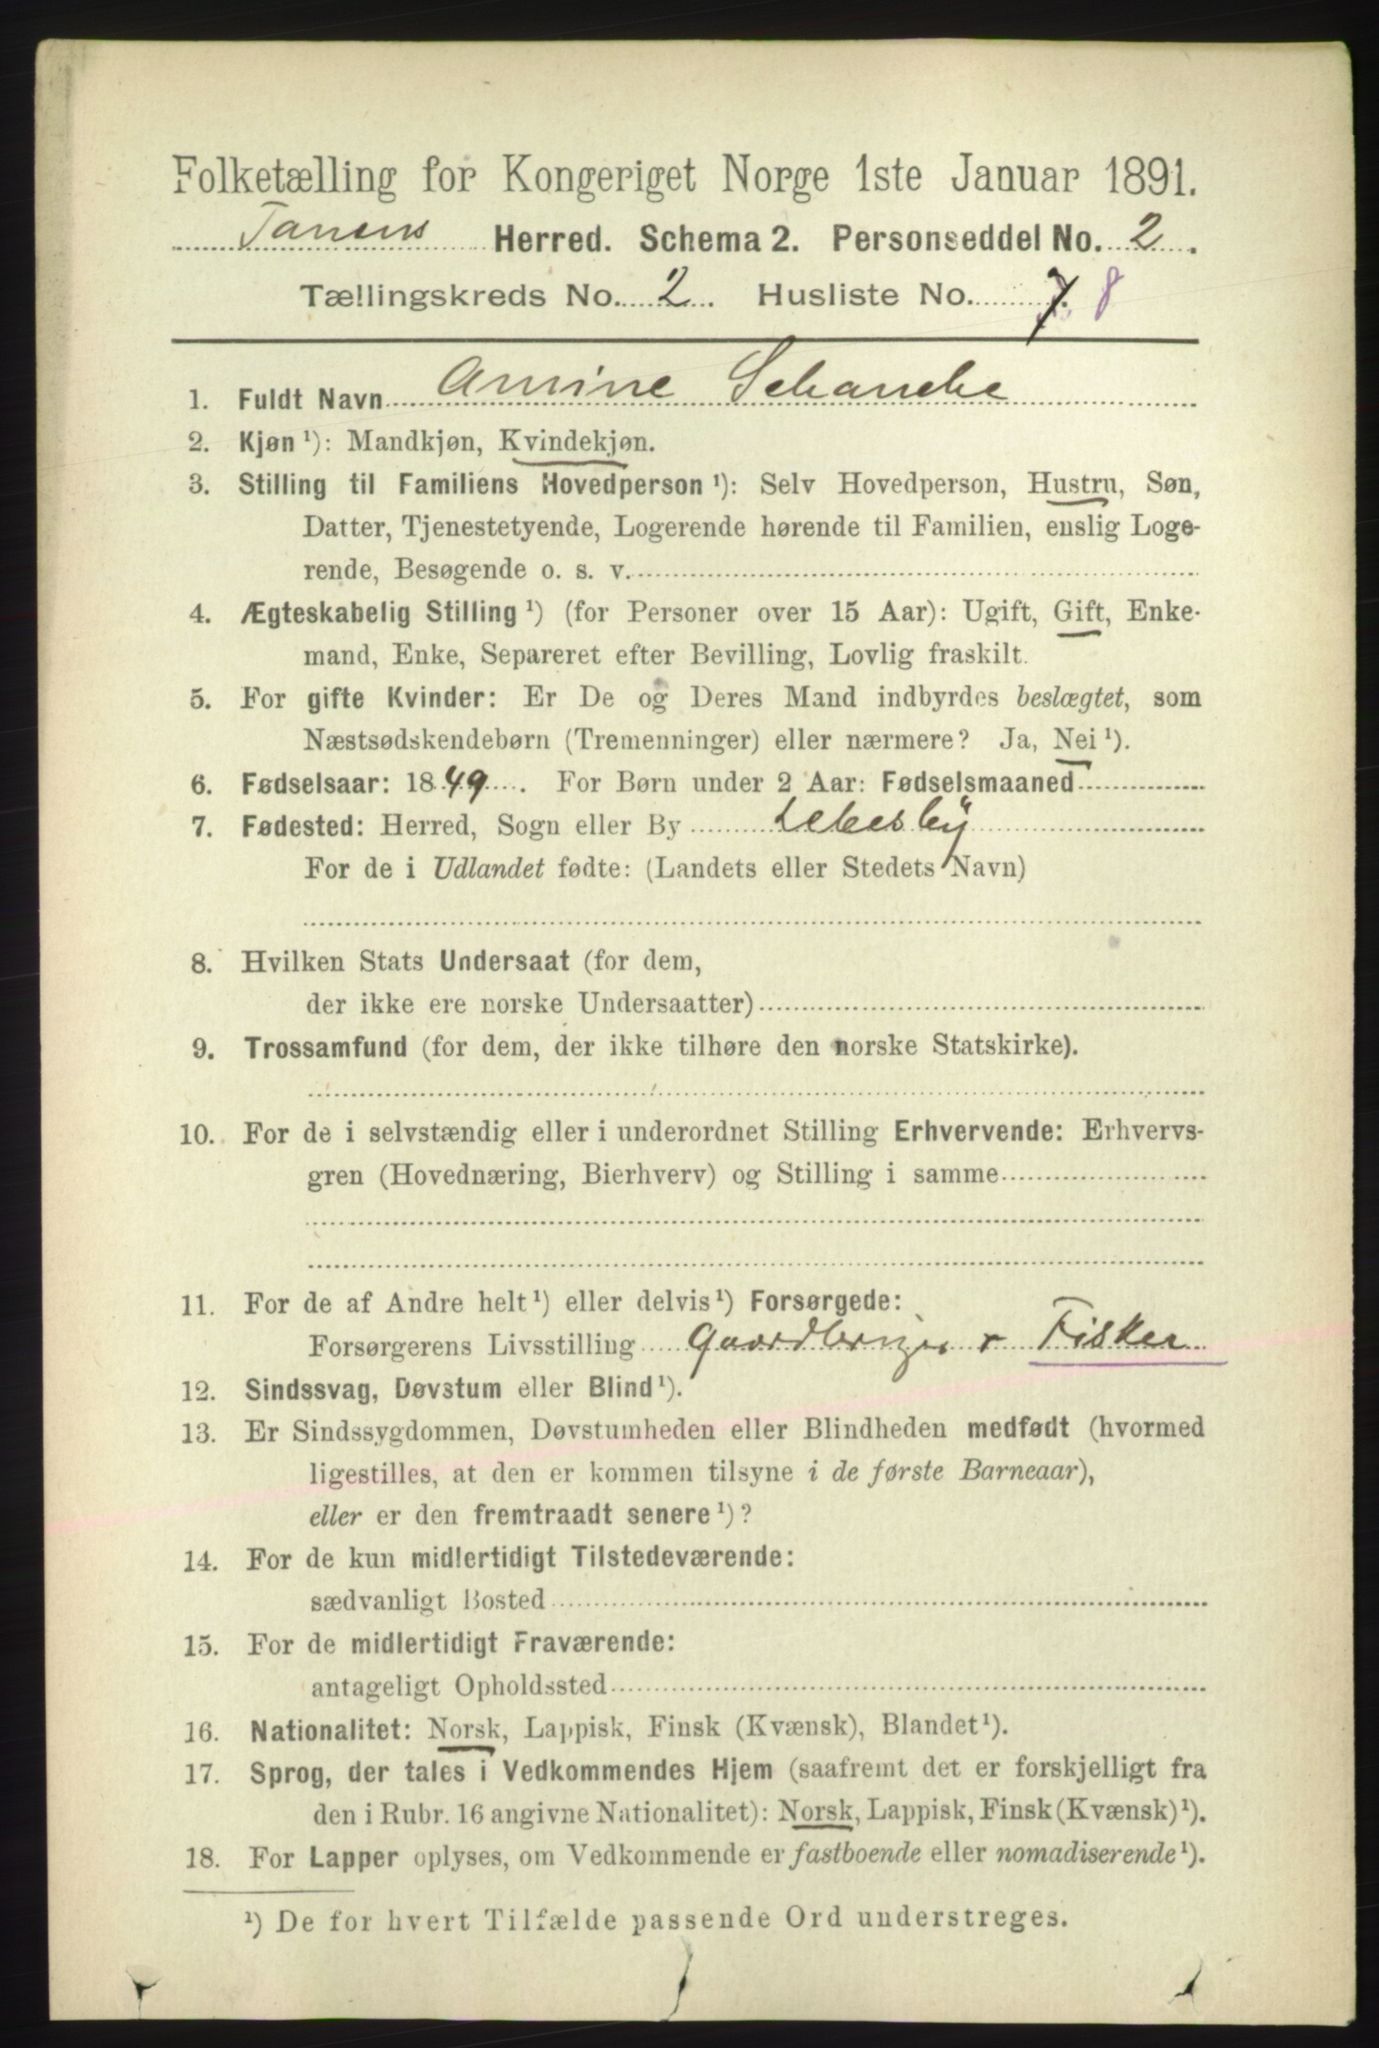 Folketælling for Kongeriget Norge 1ste Januar 1891.
Tanens Herred. Schema 2. Personseddel No. 2.
Tællingskreds No. 2. Husliste No. 7. 8
1. Fuldt Navn Amine Schanche
2. Kjøn ¹): Mandkjøn, Kvindekjøn.
3. Stilling til Familiens Hovedperson ¹): Selv Hovedperson, Hustru, Søn,
Datter, Tjenestetyende, Logerende hørende til Familien, enslig Loge-
rende, Besøgende o. s. v.
4. Ægteskabelig Stilling ¹) (for Personer over 15 Aar): Ugift, Gift, Enke-
mand, Enke, Separeret efter Bevilling, Lovlig fraskilt.
5. For gifte Kvinder: Er De og Deres Mand indbyrdes beslægtet, som
Næstsødskendebørn (Tremenninger) eller nærmere? Ja, Nei ¹).
6. Fødselsaar: 1849. For Børn under 2 Aar: Fødselsmaaned
7. Fødested: Herred, Sogn eller By Lebesby
For de i Udlandet fødte: (Landets eller Stedets Navn)
8. Hvilken Stats Undersaat (for dem,
der ikke ere norske Undersaatter)
9. Trossamfund (for dem, der ikke tilhøre den norske Statskirke).
10. For de i selvstændig eller i underordnet Stilling Erhvervende: Erhvervs-
gren (Hovednæring, Bierhverv) og Stilling i samme
11. For de af Andre helt ¹) eller delvis ¹) Forsørgede:
Forsørgerens Livsstilling Gaardbruger + Fisker
12. Sindssvag, Døvstum eller Blind ¹).
13. Er Sindssygdommen, Døvstumheden eller Blindheden medfødt (hvormed
ligestilles, at den er kommen tilsyne i de første Barneaar),
eller er den fremtraadt senere ¹)?
14. For de kun midlertidigt Tilstedeværende:
sædvanligt Bosted
15. For de midlertidigt Fraværende:
antageligt Opholdssted
16. Nationalitet: Norsk, Lappisk, Finsk (Kvænsk), Blandet ¹).
17. Sprog, der tales i Vedkommendes Hjem (saafremt det er forskjelligt fra
den i Rubr. 16 angivne Nationalitet): Norsk, Lappisk, Finsk (Kvænsk) ¹).
18. For Lapper oplyses, om Vedkommende er fastboende eller nomadiserende ¹).
¹) De for hvert Tilfælde passende Ord understreges.